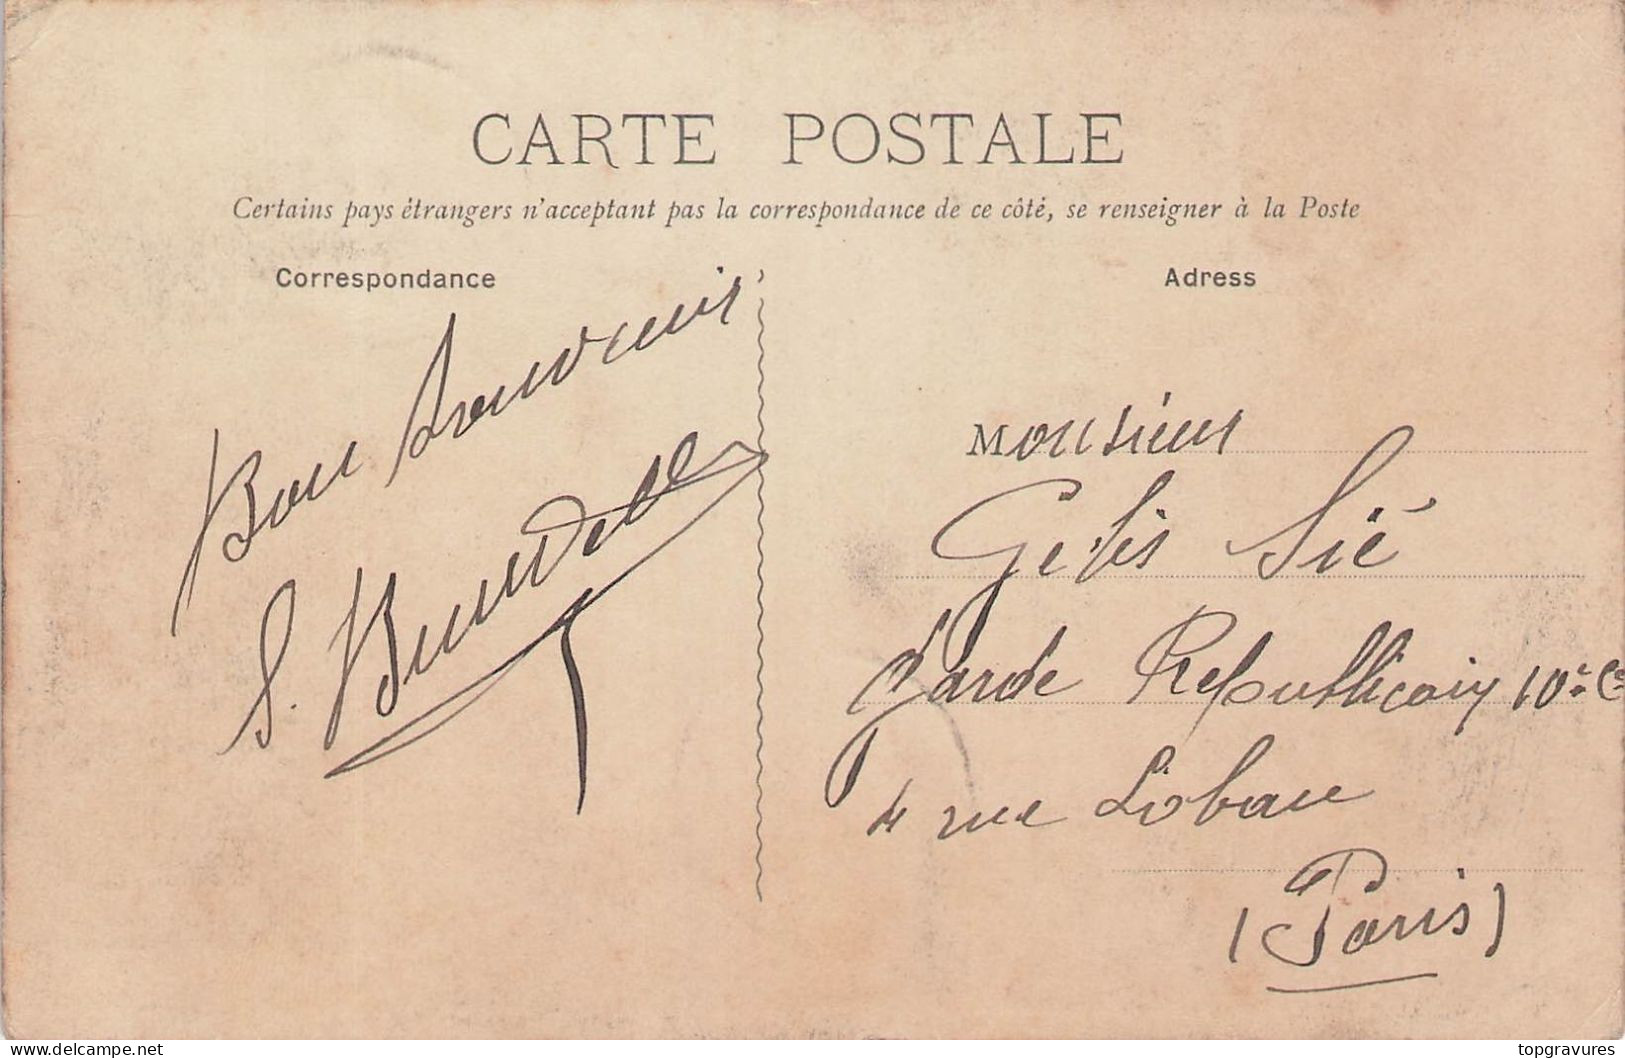 CARTE POSTALE
Certains pays étrangers n'acceptant pas la correspondance de ce côté, se renseigner à la Poste
Correspondance
Adress
Bon Souvenir
S.
Monsieur
Gelis Sié
Garde Republicain 10e Cie
4 rue Lobau
(Paris)
www.delcampe.net
topgravures